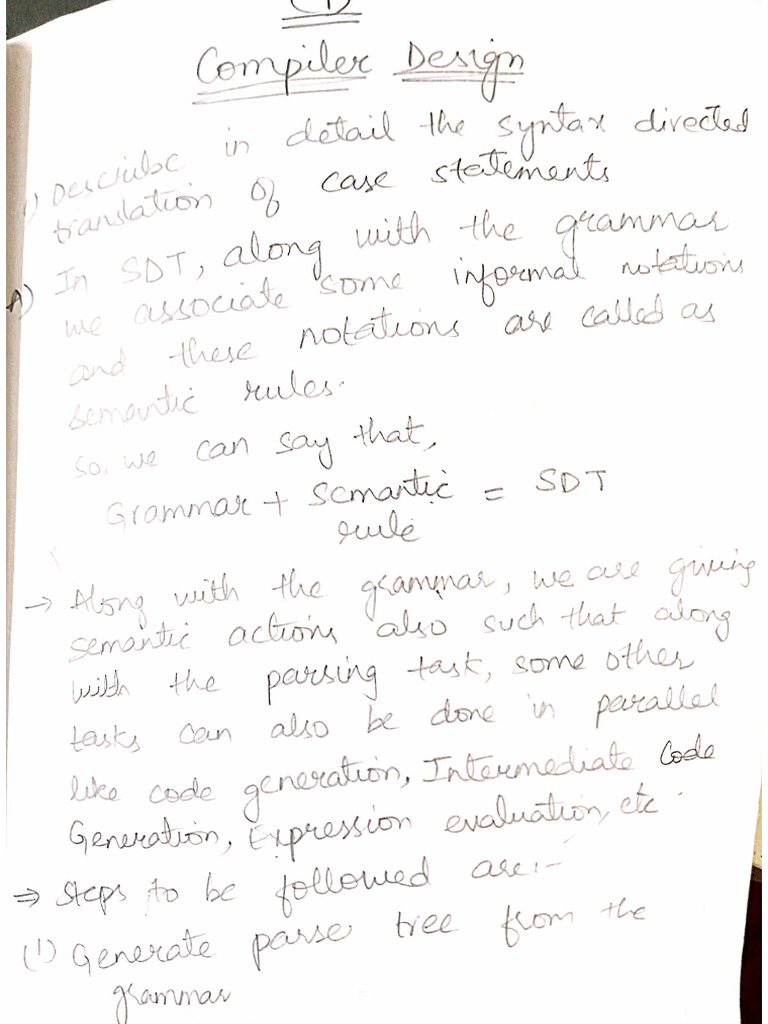 (1)
Compiler Design
1) Describe in detail the syntax directed
translation of case statements
A) In SDT, along with the grammar
we associate some informal notations
and these notations are called as
semantic rules.
So, we can say that,
Grammar + Semantic = SDT
rule
→ Along with the grammar, we are giving
semantic actions also such that along
with the parsing task, some other
tasks can also be done in parallel
like code generation, Intermediate Code
Generation, Expression evaluation, etc.
⇒ Steps to be followed are:-
(1) Generate parse tree from the
grammar